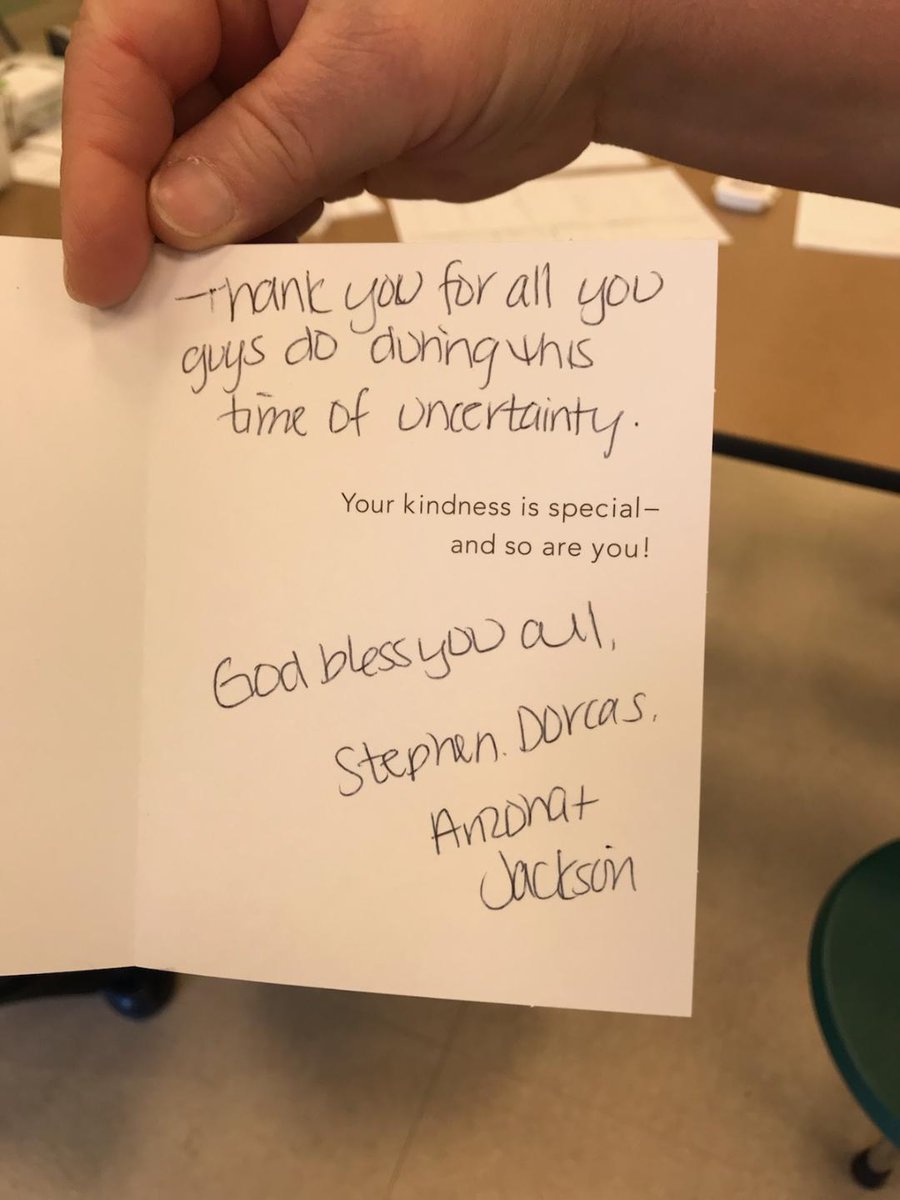 Thank you for all you
guys do during this
time of uncertainty.
Your kindness is special–
and so are you!
God bless you all,
Stephen, Dorcas,
Arizona +
Jackson